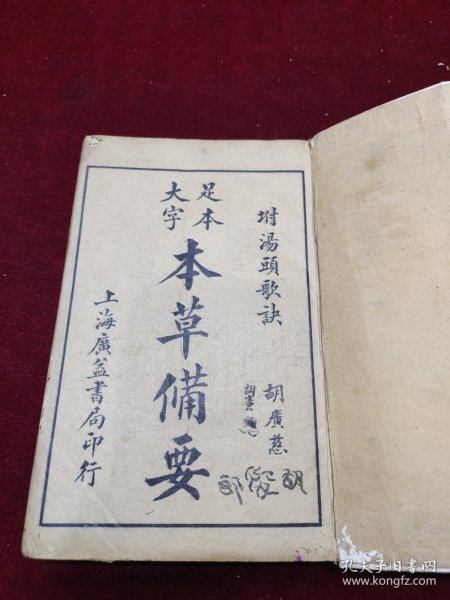 坿湯頭歌訣
胡廣慈
足本
大字
本草備要
上海廣益書局印行
孔夫子旧书网
www.kongfz.com